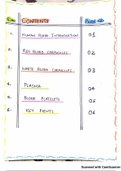 CONTENTS
1. HUMAN BLOOD INTRODUCTION 01
2. RED BLOOD CORPUSCLES 02
3. WHITE BLOOD CORPUSCLES 03
4. PLASMA 04
5. BLOOD PLATELETS 05
6. KEY POINTS 06
Scanned with CamScanner